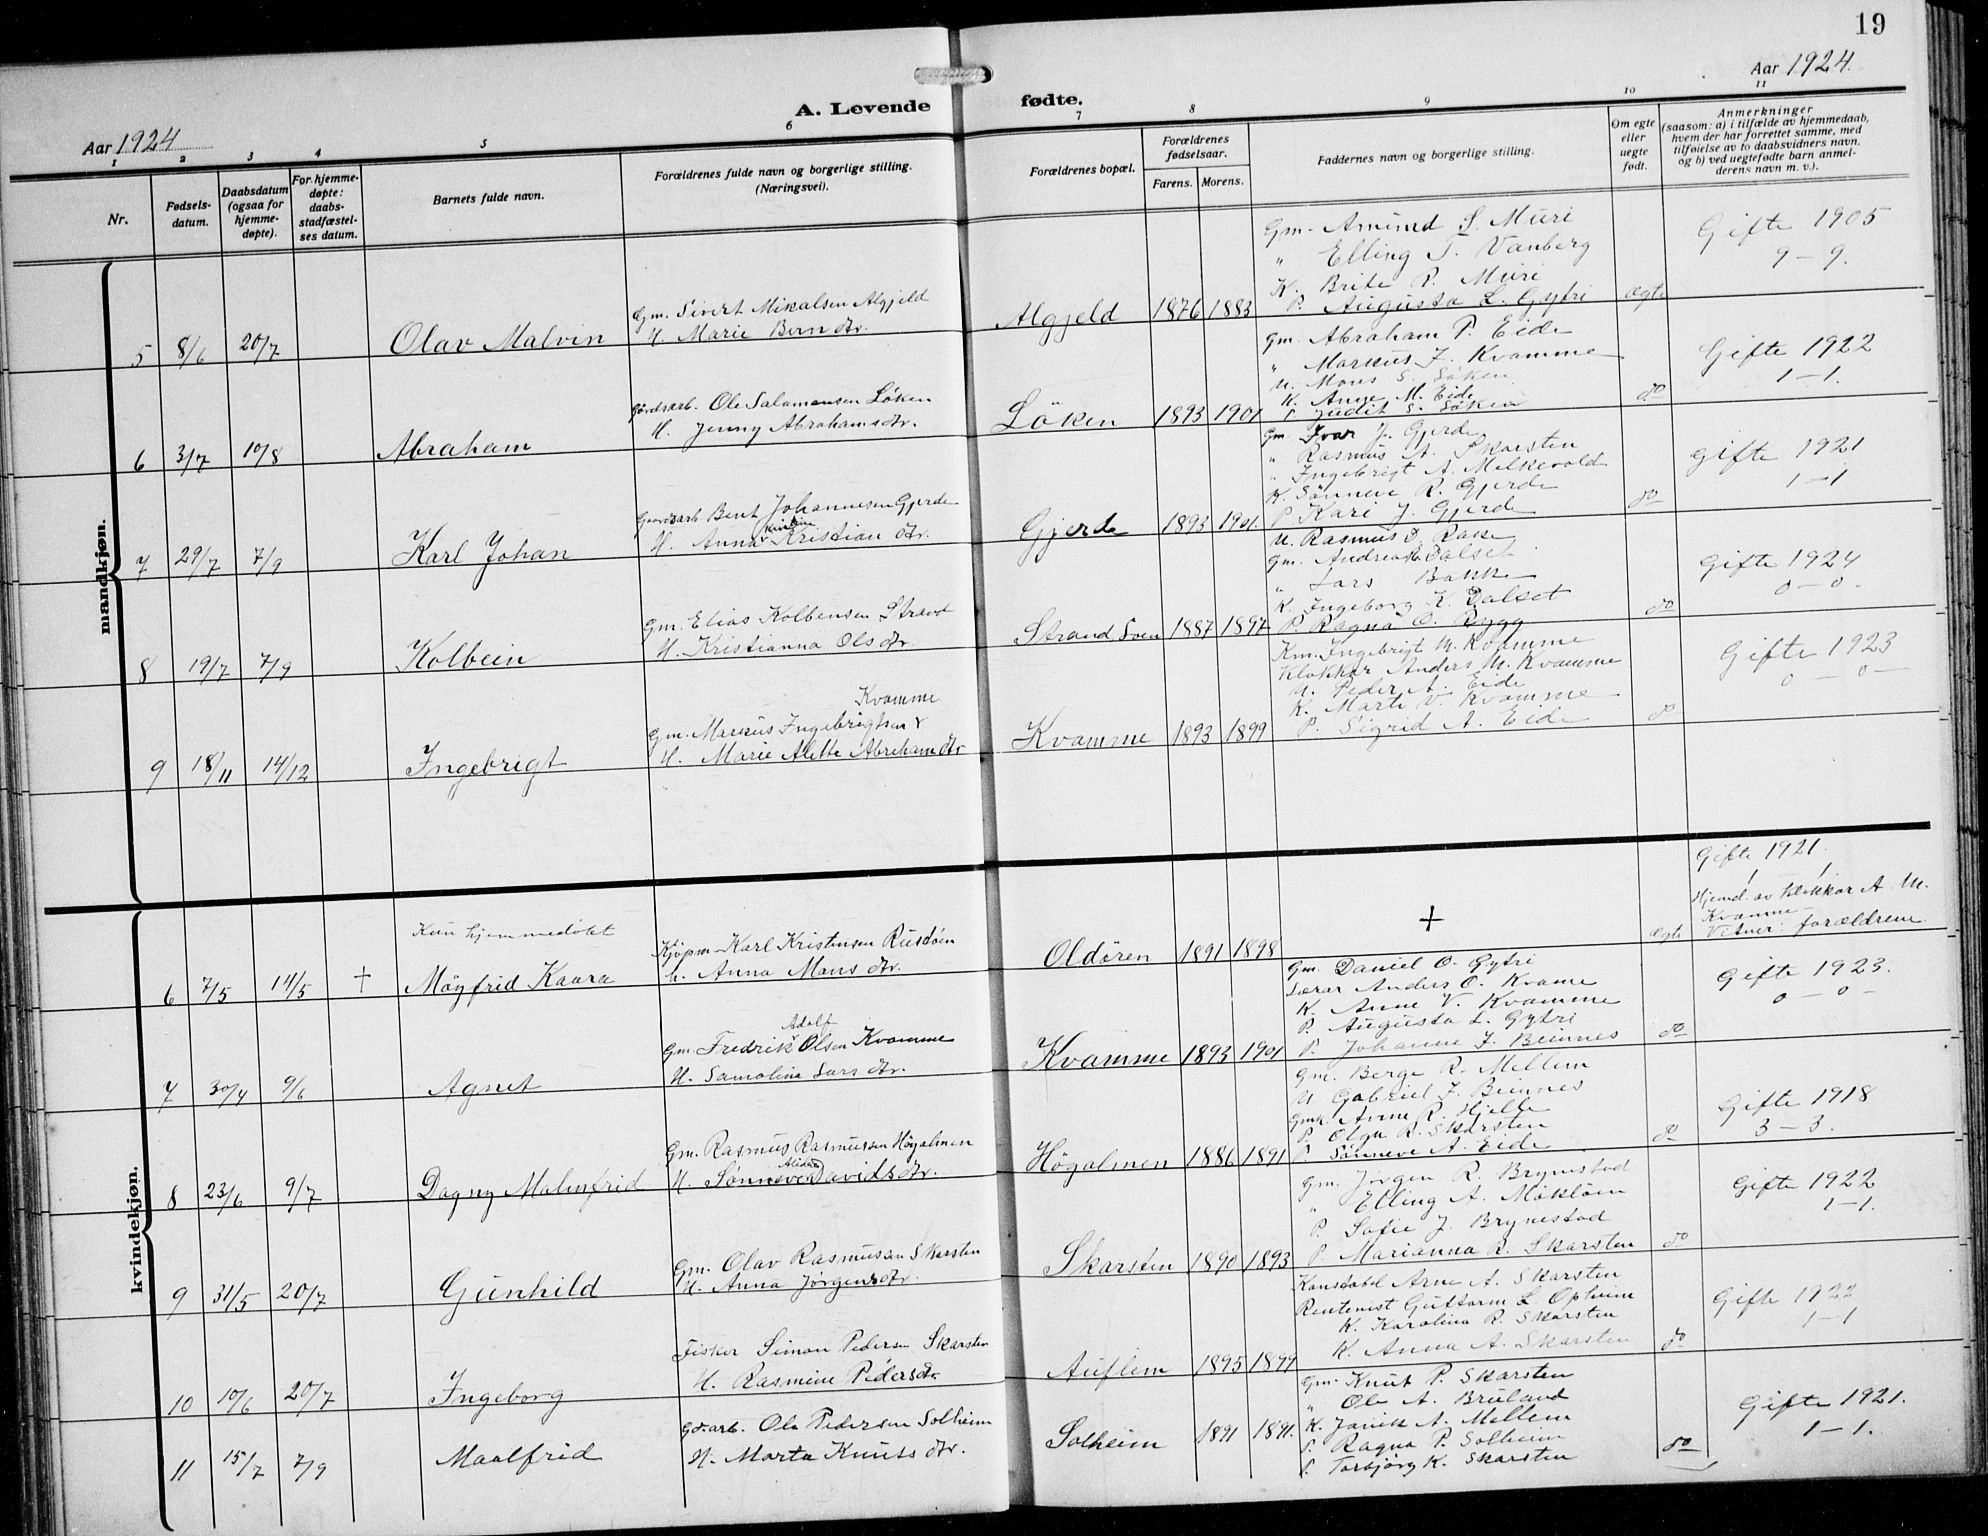 19
Aar 1924.
A. Levende fødte.
Aar 1924
1 2 3 4 5 6 7 8 9 10 11
Nr.
Fødsels-
datum.
Daabsdatum
(ogsaa for
hjemme-
døpte).
For hjemme-
døpte:
daabs-
stadfæstel-
ses datum.
Barnets fulde navn.
Forældrenes fulde navn og borgerlige stilling.
(Næringsvei).
Forældrenes bopæl.
Forældrenes
fødselsaar.
Farens. Morens.
Faddernes navn og borgerlige stilling.
Om egte
eller
uegte
født.
Anmerkninger
(saasom: a) i tilfælde av hjemmedaab,
hvem der har forrettet samme, med
tilføielse av to daabsvidners navn,
og b) ved uegtefødte barn anmel-
derens navn m. v.).
mandkjøn.
5 8/6 20/7 Olav Malvin
Gm. Sivert Mikalsen Algjeld
H. Marie Bern dtr.
Algjeld 1876 1883
Gm. Amund S. Muri
" Elling T. Vanberg
K. Brite R. Muri
P. Augusta L. Gytri
ægte
Gifte 1905
9 – 9.
6 3/7 10/8 Abraham
Gårdsarb. Ole Salamonsen Löken
H. Jenny Abrahamsdtr.
Löken 1893 1901
Gm. Abraham P. Eide
" Markus J. Kvamme
U. Mons S. Löken
K. Anne M. Eide
P. Judit S. Löken
do
Gifte 1922
1 – 1.
7 29/7 7/9 Karl Johan
Gaardsarb Bent Johannesen Gjerde
H. Anna Kristine Kristian dtr.
Gjerde 1893 1901.
Gm. Ivar J. Gjerde
" Rasmus A. Skarsten
" Ingebrigt A. Melkevold
K. Sönneve R. Gjerde
P Kari J. Gjerde
do
Gifte 1921
1 – 1
8 19/7 7/9 Kolbein
Gm. Elias Kolbensen Strand
H. Kristianna Ols dtr.
Strand Loen 1887 1897
U. Rasmus D. Rake
Gm. Andreas E. Dalset
" Lars Bakke
K. Ingeborg K. Dalset
P. Ragna O. Rygg
do
Gifte 1924
0 – 0.
9 18/11 14/12 Ingebrigt
Kvamme
Gm. Markus Ingebrigtsen
H. Marie Alette Abraham dtr
Kvamme 1893 1899
Km. Ingebrigt M. Kvamme
Klokkar Anders M. Kvamme
U. Peder A. Eide
K. Marte V. Kvamme
P. Sigrid A. Eide
do
Gifte 1923
0 – 0 –
kvindekjøn.
Kun hjemmedöbt
6 7/5 14/5 + Möyfrid Kaara
Kjöpm. Karl Kristensen Rusdöen
H. Anna Mons dtr.
Oldören 1891 1898
+
ægte
Gifte 1921.
1 1
Hjemd. av klokkar A. M.
Kvamme
Vitner: forældrene
7 30/4 9/6 Agnet
Gm. Fredrik Adolf Olsen Kvamme
H. Samolina Lars dtr.
Kvamme 1893 1901
Gm. Daniel O. Gytri
Lærar Anders O. Kvame
K. Anne V. Kvamme
P. Augusta L. Gytri
P. Johanne J. Beinnes
do
Gifte 1923.
0 – 0 –
8 23/6 9/7 Dagny Malmfrid
Gm. Rasmus Rasmussen Högalmen
H. Sönneve Alida Davids dtr.
Högalmen 1886 1891
Gm. Berge R. Mellem
U Gabriel J. Beinnes
Gmk Anne R. Hjelle
P. Olga R. Skarsten
P. Sönneve A. Eide
do
Gifte 1918
3 – 3.
9 31/5 20/7 Gunhild
Gm. Olav Rasmusen Skarsten
H. Anna Jørgens dtr.
Skarsten 1890 1893
Gm. Jørgen R. Brynestad
" Elling A. Möklöin
P. Sofie J. Brynestad
P. Marianna R. Skarsten
do
Gifte 1922
1 – 1.
10 10/6 20/7 Ingeborg
Fisker Simon Pedersen Skarsten
H. Rasmine Pedersdtr
Auflem 1895 1899
Konstabel Arne A. Skarsten
Rentenist Guttorm L. Opheim
K. Karolina R. Skarsten
K. Anna A. Skarsten
do
Gifte 1922
1 – 1
11 15/7 7/9 Maalfrid
Gdsarb. Ole Pedersen Solheim
H. Marta Knuts dtr.
Solheim 1891 1891.
Gm. Knut P. Skarsten
" Ole A. Bruland
K. Janik A. Mellem
P. Ragna P. Solheim
P. Torbjörg K. Skarsten
do
Gifte 1921.
1 – 1.